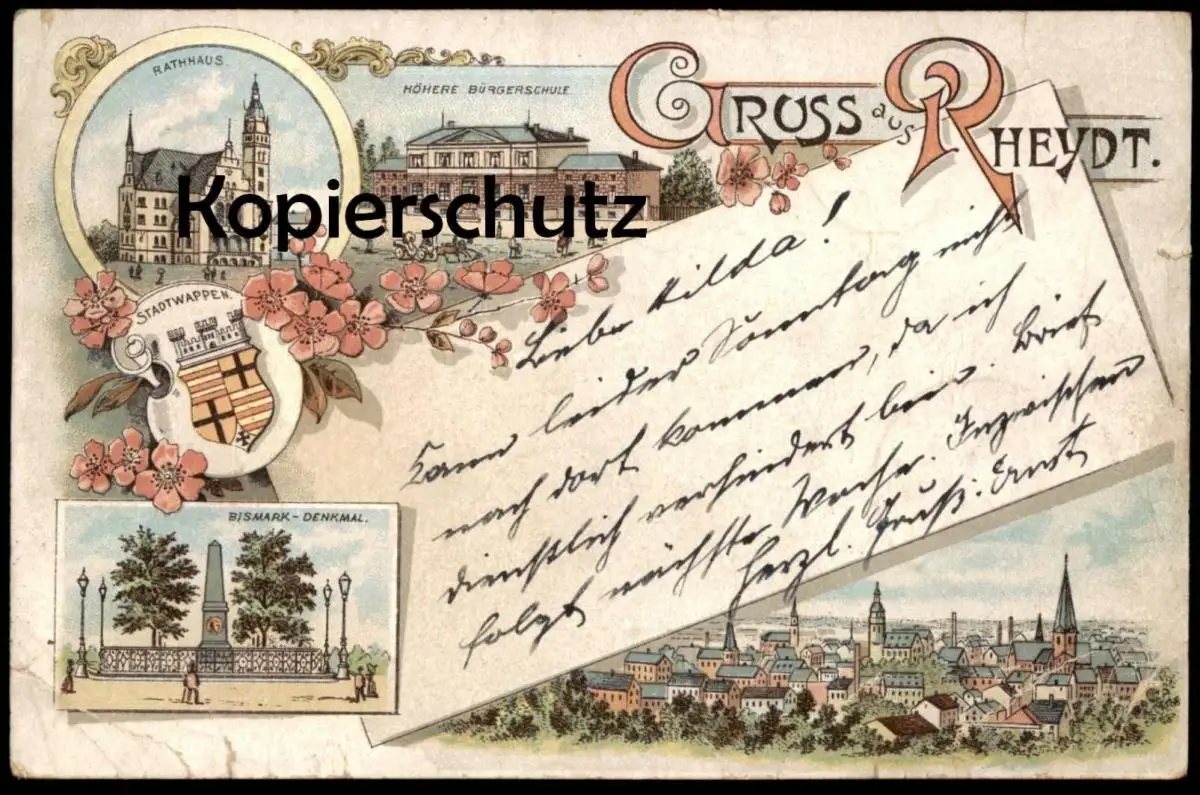 RATHHAUS.
HÖHERE BÜRGERSCHULE.
GRUSS aus RHEYDT.
Kopierschutz
STADTWAPPEN.
BISMARK-DENKMAL.
Liebe Hilda!
Kann leider Sonntag nicht
nach dort kommen, da ich
dienstlich verhindert bin. Brief
folgt nächste Woche. Inzwischen
herzl. Gruß. Ernst